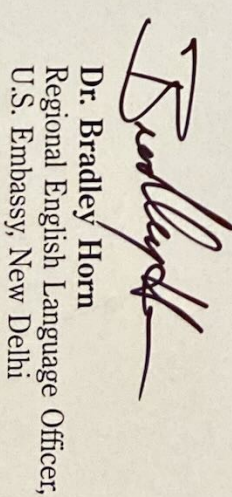 Bradley H
Dr. Bradley Horn
Regional English Language Officer,
U.S. Embassy, New Delhi